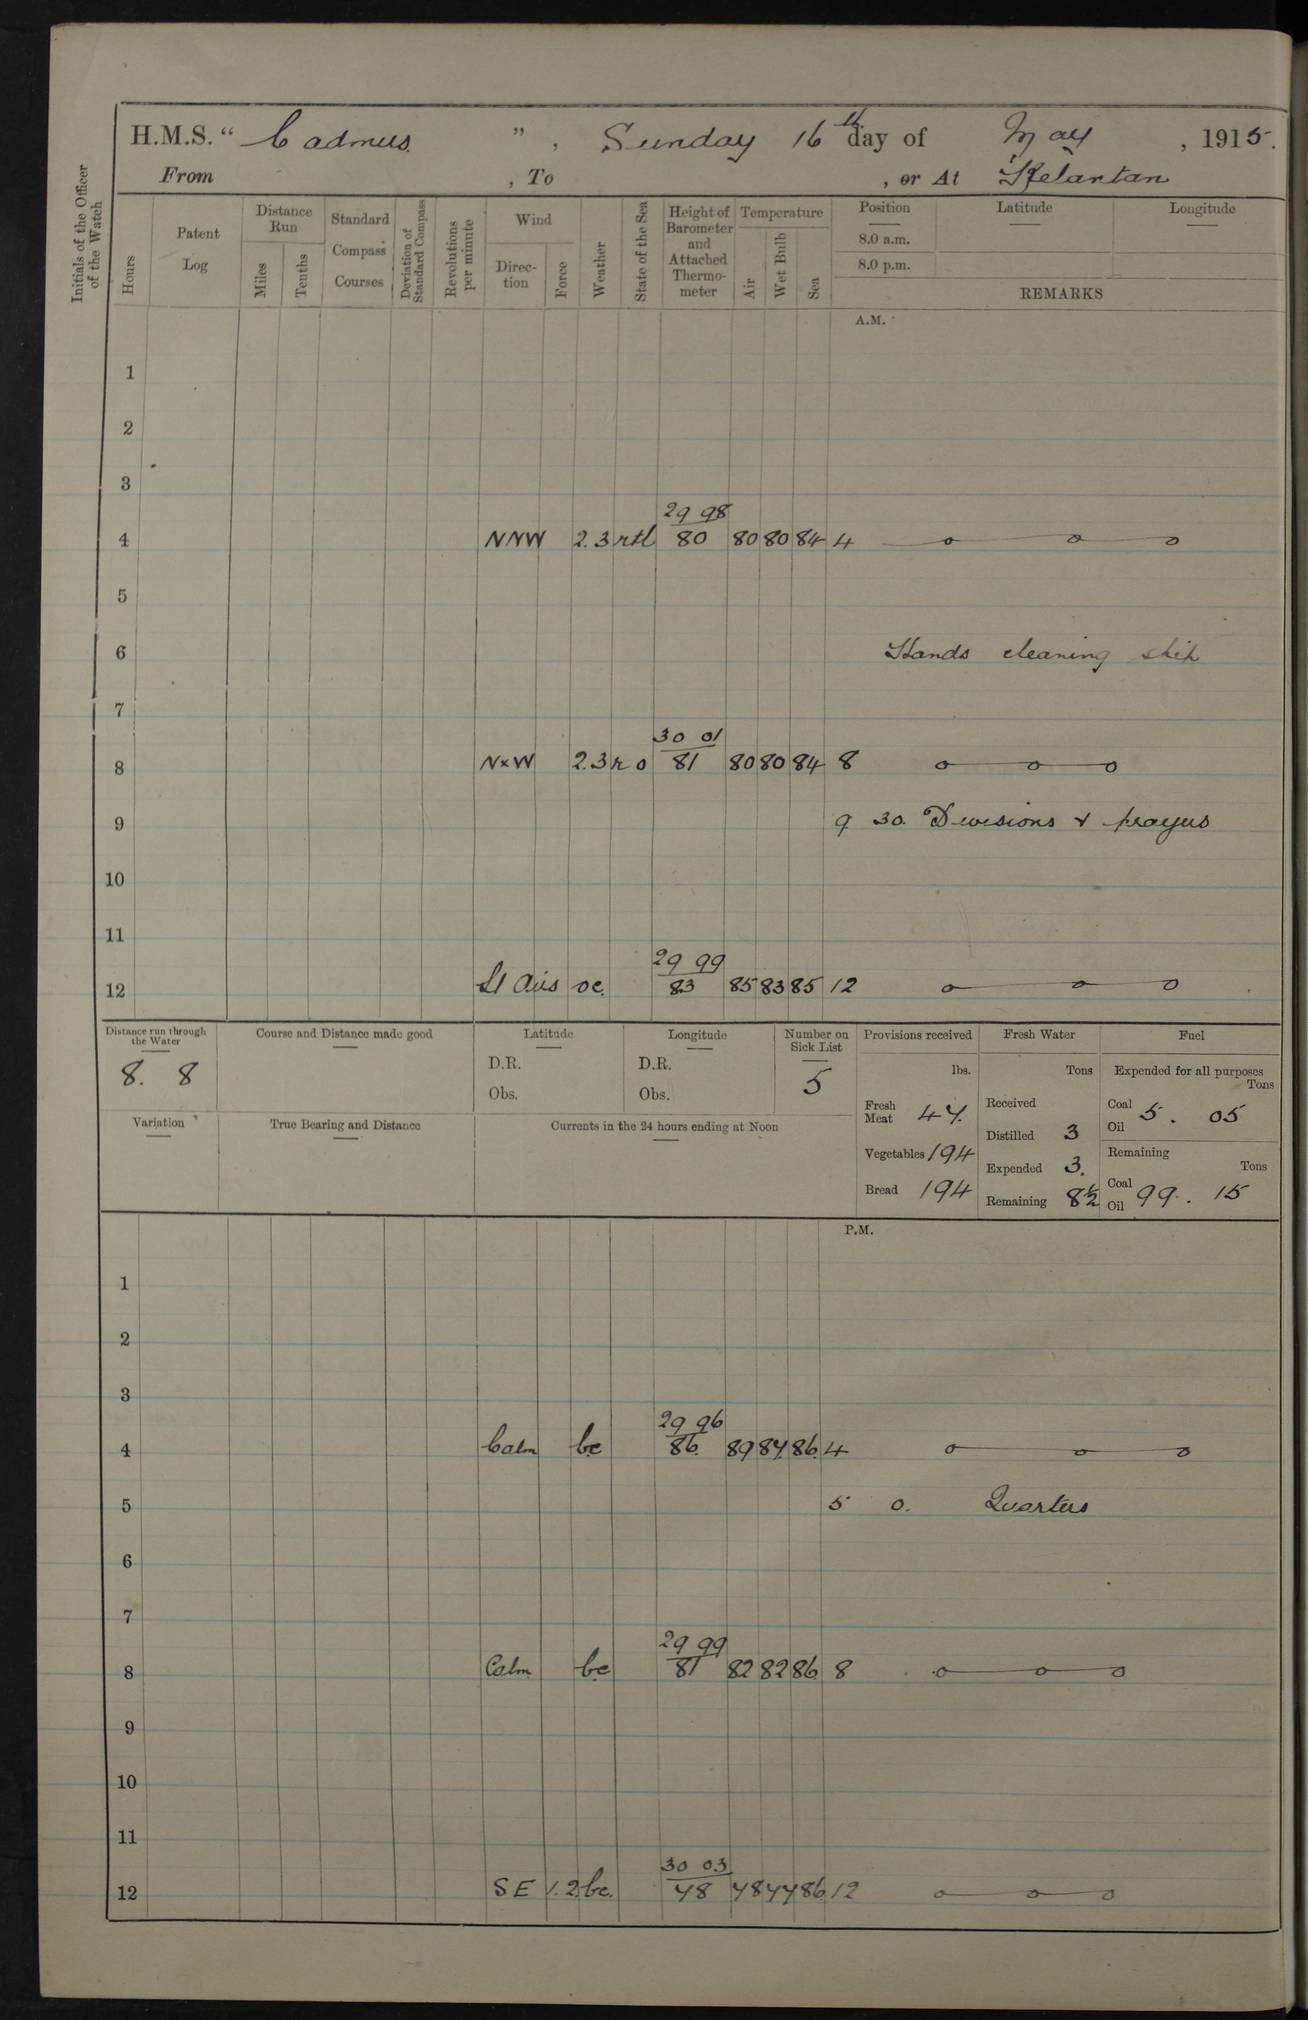 H.M.S. “ Cadmus ” , Sunday 16th day of May , 1915.
From , To , or At Kelantan
Initials of the Officer of the Watch
Hours
Patent Log
Distance Run
Miles
Tenths
Standard Compass Courses
Deviation of Standard Compass
Revolutions per minute
Wind
Direc-tion
Force
Weather
State of the Sea
Height of Barometer and Attached Thermo-meter
Temperature
Air
Wet Bulb
Sea
Position Latitude Longitude
8.0 a.m.
8.0 p.m.
REMARKS
A.M.
1
2
3
29 98
4 NNW 2.3 rtl 80 80 80 84 4
5
6 Hands cleaning ship
7
30 01
8 N×W 2.3 r o 81 80 80 84 8
9 9 30. Divisions & prayers
10
11
29 99
12 Lt Airs oc. 83 85 83 85 12
Distance run through the Water
8. 8
Course and Distance made good
Latitude
D.R.
Obs.
Longitude
D.R.
Obs.
Number on Sick List
5
Provisions received
lbs.
Fresh Meat 47.
Vegetables 194
Bread 194
Fresh Water
Tons
Received
Distilled 3
Expended 3.
Remaining 8½
Fuel
Expended for all purposes
Tons
Coal
Oil 5. 05
Remaining
Tons
Coal
Oil 99. 15
Variation
True Bearing and Distance
Currents in the 24 hours ending at Noon
P.M.
1
2
3
29 96
4 Calm bc 86. 89 87. 86. 4
5 5 0. Quarters
6
7
29 99
8 Calm bc 81 82 82 86 8
9
10
11
30 03
12 SE 1.2 bc. 78 78 77 86 12